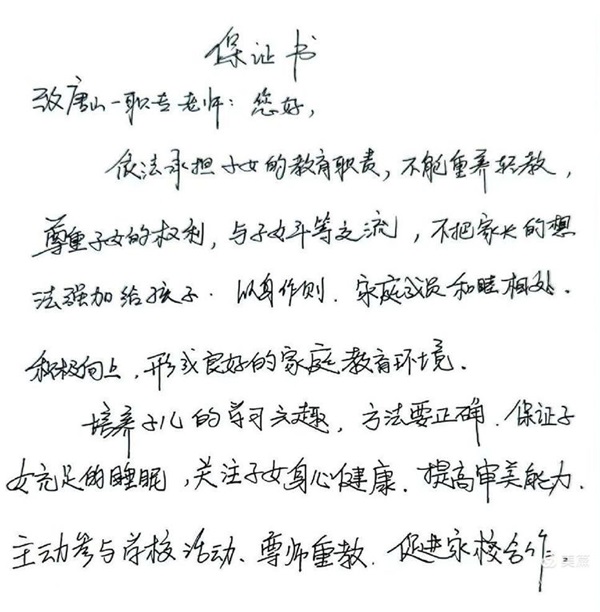 保证书
致唐山一职专老师：您好，
依法承担子女的教育职责，不能重养轻教，
尊重子女的权利，与子女平等交流，不把家长的想
法强加给孩子．以身作则．家庭成员和睦相处．
积极向上，形成良好的家庭教育环境．
培养子儿的学习兴趣，方法要正确．保证子
女充足的睡眠，关注子女身心健康．提高审美能力．
主动参与学校活动、尊师重教．促进家校合作．
美篇